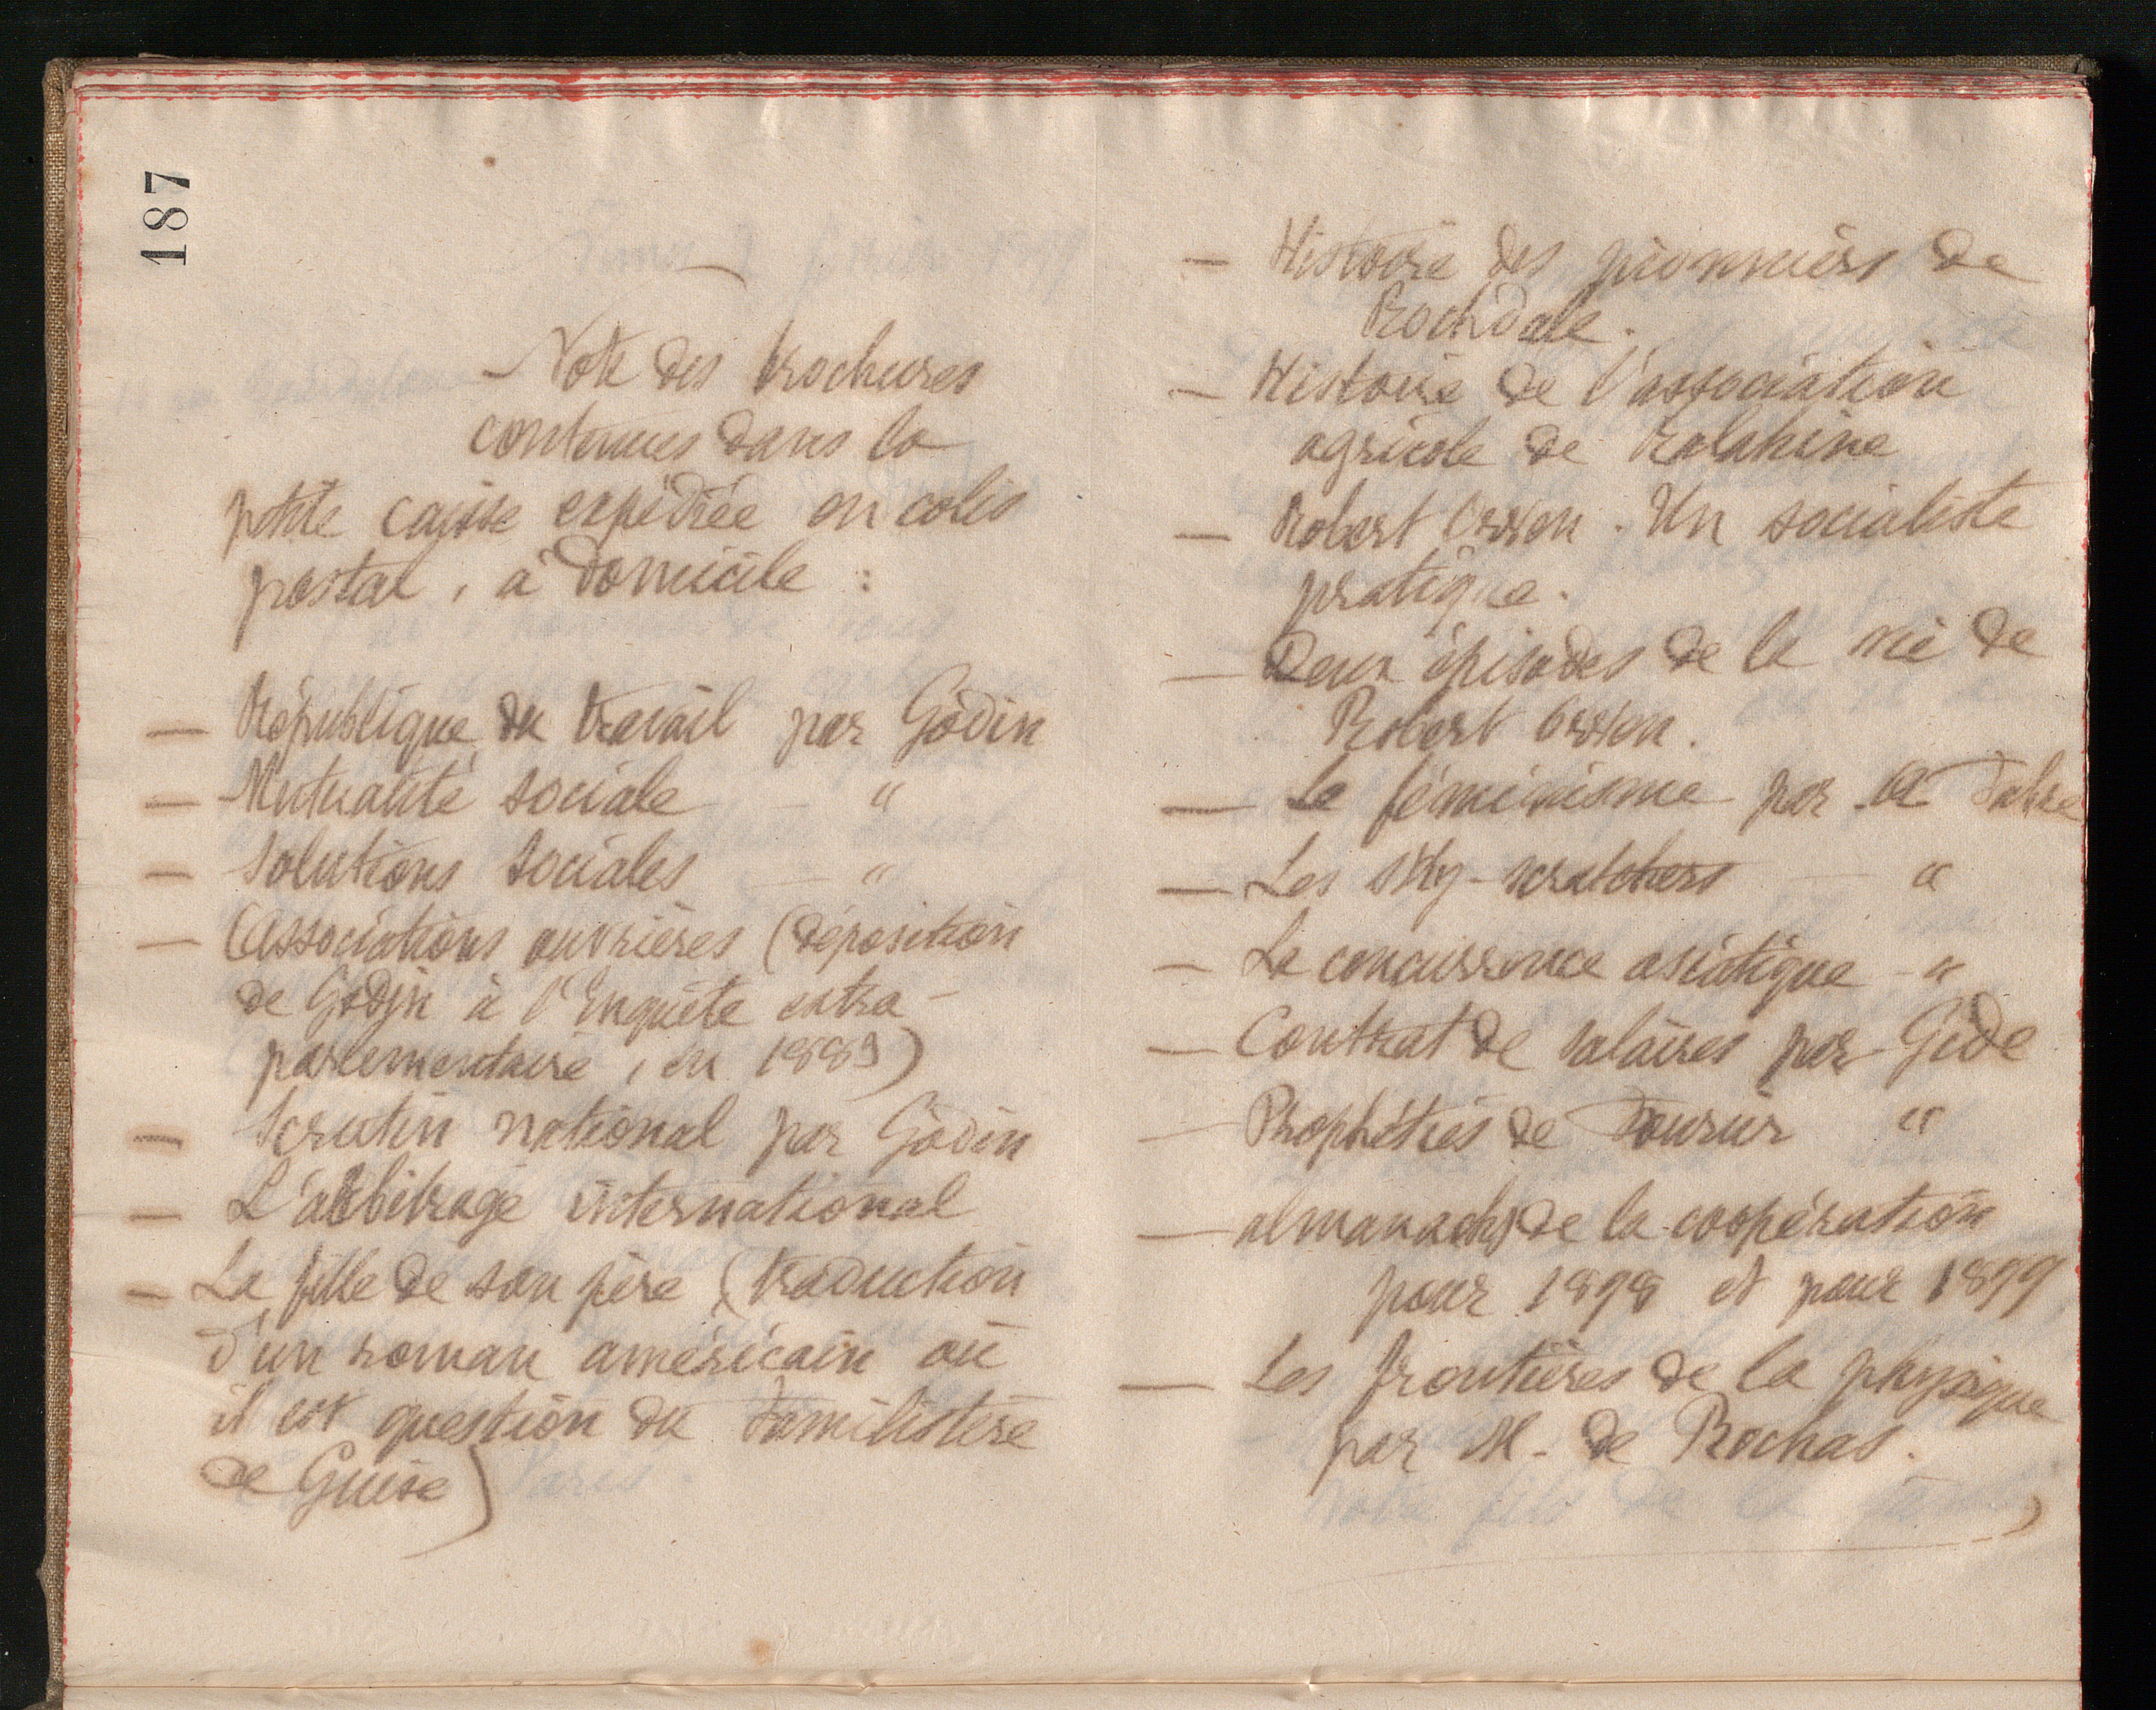 187
- Note des brochures
contenues dans la
petite caisse expédiée en colis
postal, à domicile :
— République du travail par Godin
— Mutualité sociale — "
— Solutions sociales — "
— Associations ouvrières (déposition
de Godin à l'Enquête extra-
parlementaire, en 1883)
— Scrutin national par Godin
— L'arbitrage international
— La fille de son père (traduction
d'un roman américain où
il est question du Familistère
de Guise)
— Histoire des pionniers de
Rochdale.
— Histoire de l'association
agricole de Ralahine
— Robert Owen. Un socialiste
pratique.
— Deux épisodes de la vie de
Robert Owen.
— Le féminisme par A Fabre
— Les Sky-scratchers — "
— La concurrence asiatique - "
— Contrat de salaires par Gide
— Prophéties de Fourier "
— almanachs de la coopération
pour 1898 et pour 1899
— Les frontières de la physique
par M. de Rochas.